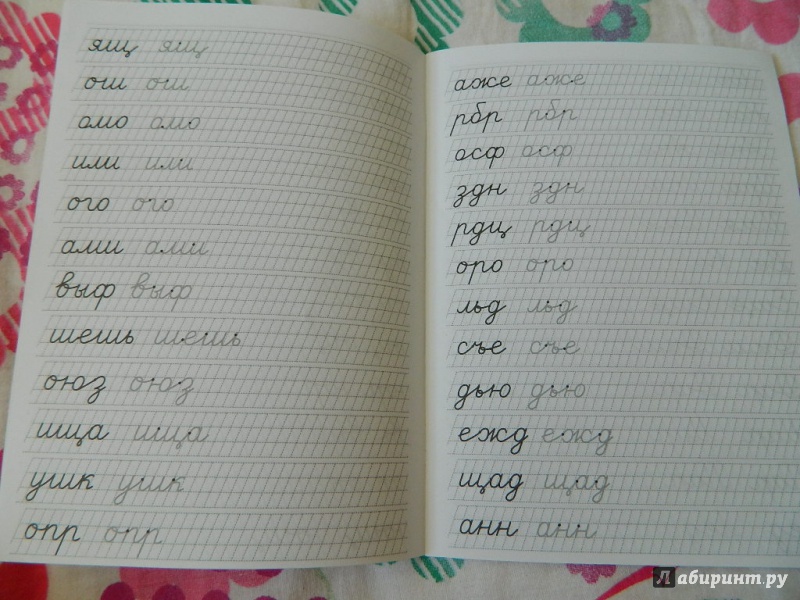 ящ ящ
ош ош
омо омо
или или
ого ого
ами ами
выф выф
шешь шешь
оюз оюз
ища ища
ушк ушк
опр опр
аже аже
рбр рбр
осф осф
здн здн
рдц рдц
оро оро
льд льд
съе съе
дью дью
ежд ежд
щад щад
анн анн
Лабиринт.ру